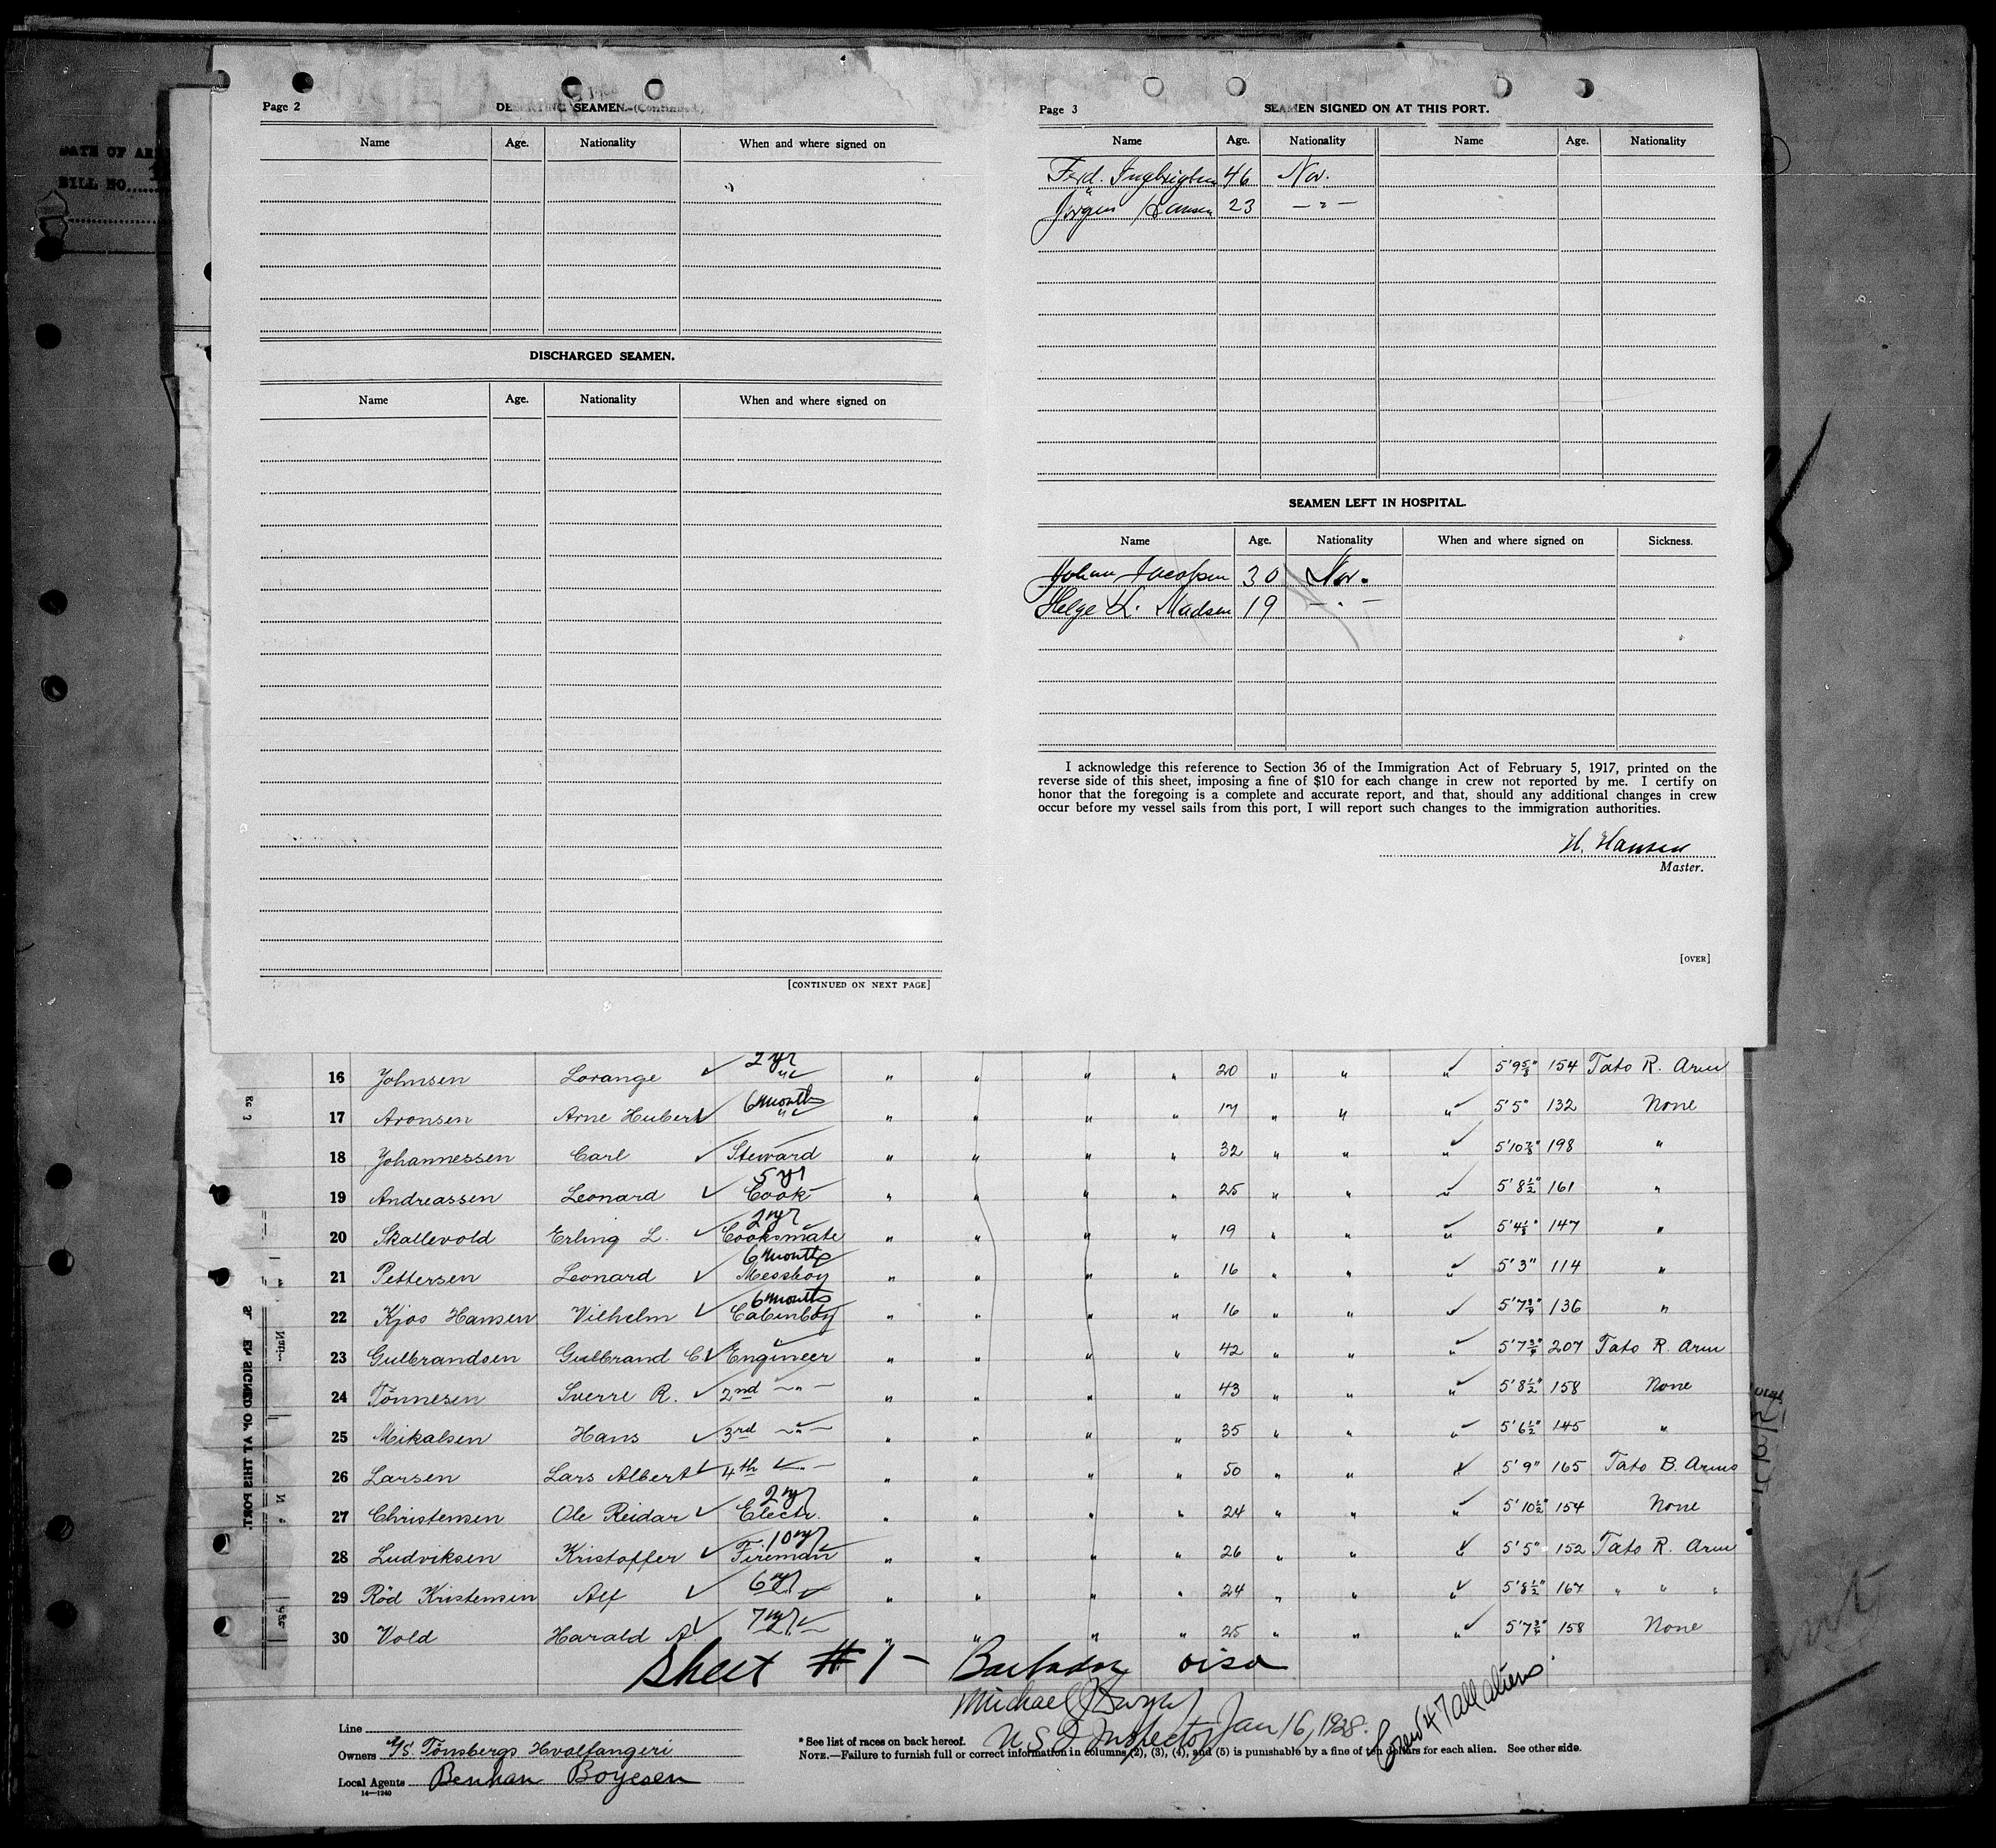 DATE OF AR
BILL NO.
Page 2
DESERTING SEAMEN.—(Continued.)
Name Age. Nationality When and where signed on
DISCHARGED SEAMEN.
Name Age. Nationality When and where signed on
[CONTINUED ON NEXT PAGE]
Page 3
SEAMEN SIGNED ON AT THIS PORT.
Name Age. Nationality Name Age. Nationality
Ferd. Ingbrigtsen 46 Nor.
Jörgen Hansen 23 — " —
SEAMEN LEFT IN HOSPITAL.
Name Age. Nationality When and where signed on Sickness.
Johan Jacobsen 30 Nor.
Helge K. Madsen 19 — " —
I acknowledge this reference to Section 36 of the Immigration Act of February 5, 1917, printed on the
reverse side of this sheet, imposing a fine of $10 for each change in crew not reported by me. I certify on
honor that the foregoing is a complete and accurate report, and that, should any additional changes in crew
occur before my vessel sails from this port, I will report such changes to the immigration authorities.
H. Hansen
Master.
[OVER]
16 Johnsen Lorange ✓ 2 yr " " " " " 20 " " " 5'9⅝" 154 Tato R. Arm
17 Aronsen Arne Hubert ✓ 6 months " " " " " 17 " " " 5'5" 132 None
18 Johannessen Carl ✓ Steward " " " " 32 " " " 5'10⅞" 198 "
19 Andreassen Leonard ✓ 5 yr Cook " " " " 25 " " " 5'8½" 161 "
20 Skallevold Erling L. ✓ 2 yr Cooksmate " " " " 19 " " " 5'4⅛" 147 "
21 Pettersen Leonard ✓ 6 months Messboy " " " " 16 " " " 5'3" 114 "
22 Kjos Hansen Vilhelm ✓ 6 months Cabinboy " " " " 16 " " " 5'7¾" 136 "
23 Gulbrandsen Gulbrand C. ✓ Engineer " " " " 42 " " " 5'7¾" 207 Tato R. Arm
24 Tönnesen Sverre R. ✓ 2nd —"— " " " " 43 " " " 5'8½" 158 None
25 Mikalsen Hans ✓ 3rd —"— " " " " 35 " " " 5'6½" 145 "
26 Larsen Lars Albert ✓ 4th —"— " " " " 50 " " " 5'9" 165 Tato B. Arms
27 Christensen Ole Reidar ✓ 2 yr Electr. " " " " 24 " " " 5'10½" 154 None
28 Ludviksen Kristoffer ✓ 10 yr Fireman " " " " 26 " " " 5'5" 152 Tato R. Arm
29 Röd Kristensen Alf ✓ 6 yr " " " " 24 " " " 5'8½" 167 " " "
30 Vold Harald A. ✓ 7 yr " " " " 25 " " " 5'7¾" 158 None
Sheet #1 — Barbados visa
Michael
U S I Inspector Jan 16, 1928.
Crew 47 all aliens
Line
Owners A/S. Tönsbergs Hvalfangeri
Local Agents Benhan Boyesen
14—1240
* See list of races on back hereof.
NOTE.—Failure to furnish full or correct information in columns (2), (3), (4), and (5) is punishable by a fine of ten dollars for each alien. See other side.